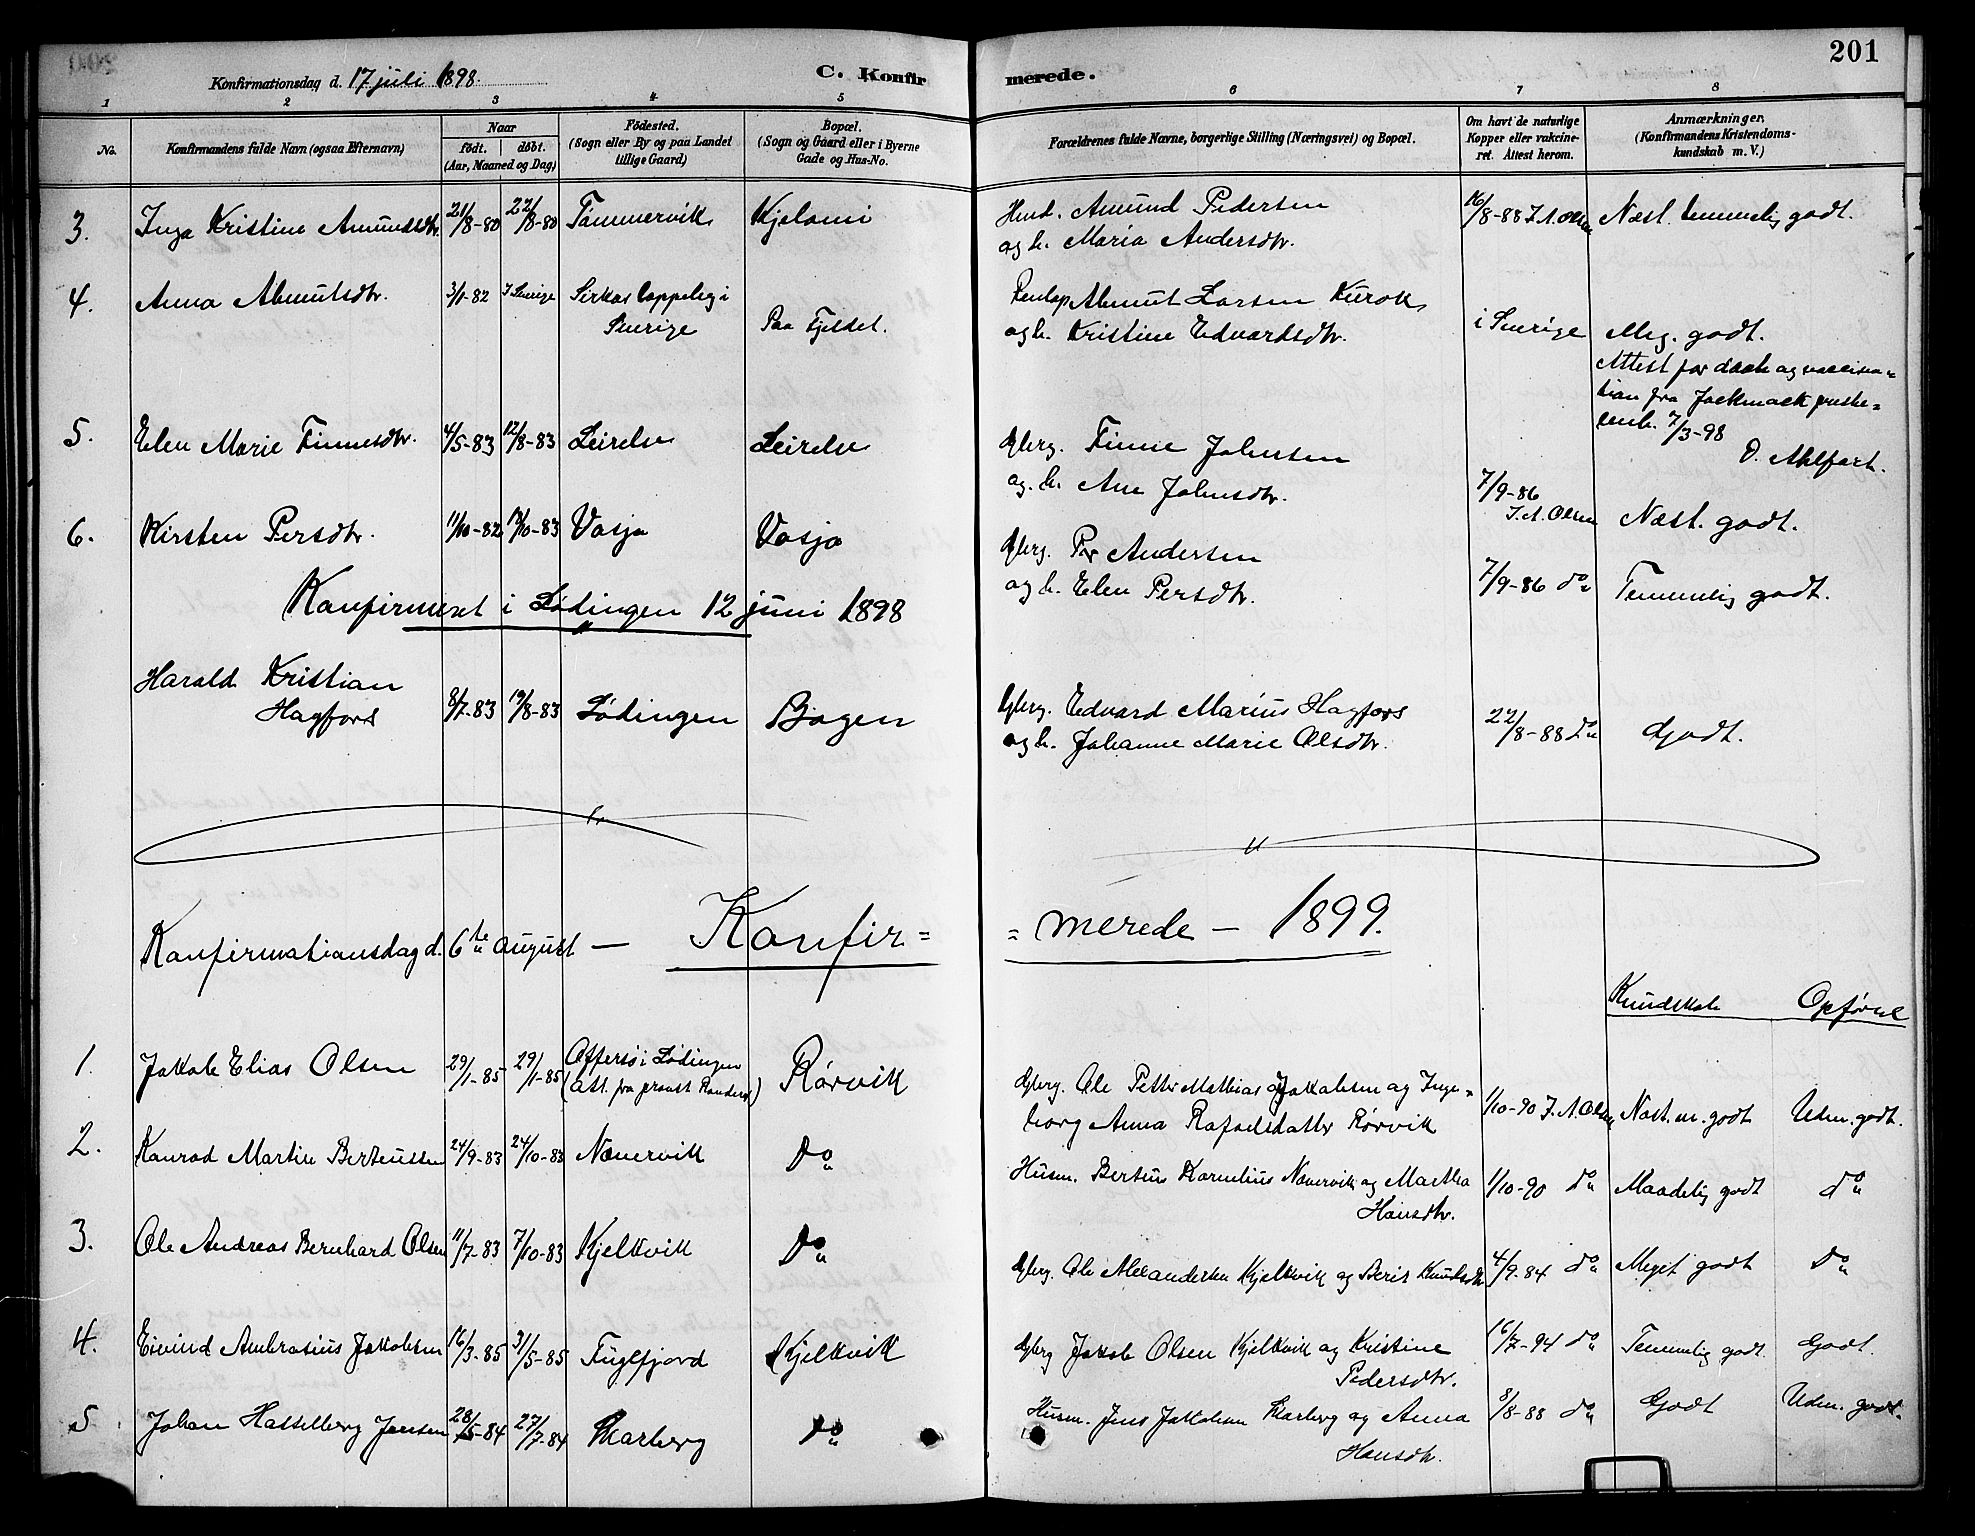 201
Konfirmationsdag d. 17 juli 1898.
C. Konfir
merede.
1 2 3 4 5 6 7 8
No.
Konfirmandens fulde Navn (ogsaa Efternavn)
Naar
født. døbt.
(Aar, Maaned og Dag)
Fødested.
(Sogn eller By og paa Landet
tillige Gaard)
Bopæl.
(Sogn og Gaard eller i Byerne
Gade og Hus-No.
Forældrenes fulde Navne, borgerlige Stilling (Næringsvei) og Bopæl.
Om havt de naturlige
Kopper eller vakcine-
ret. Attest herom.
Anmærkninger.
(Konfirmandens Kristendoms-
kundskab m. V.)
3. Inga Kristine Amundsdtr. 21/8-80 22/8-80 Tømmervik Kjelami
Amund Pedersen
og h. Maria Andersdtr.
16/8-88 J. A. Olsen Næst. temmelig godt.
4. Anna Abmutsdtr. 3/1-82 I Sverige Sirkas lappeby i
Sverige
Paa Fjeldet.
Abmut Larsen Kurok
og h. Kristine Edvardsdtr.
i Sverige Meg. godt.
Attest for daab og vaccina=
tion fra Jockmock preste=
7/3-98
5. Elen Marie Finnesdtr. 4/5-83 12/8-83 Leirelv Leirelv
Gberg. Finne Johnsen
og. h. Ane Johnsdtr.
7/9-86
J. A. Olsen Næst. godt.
6. Kirsten Persdtr. 11/10-82 Vasja Vasja
Gberg. Per Andersen
og h. Elen Persdtr.
7/9-86 do Temmelig godt.
Konfirmeret i Lødingen 12 juni 1898
Harald Kristian
Hagfors
8/7-83 19/8-83 Lødingen Bogen
Gberg. Edvard Marius Hagfors
og h. Johanne Marie Olsdtr.
22/8-88 do Godt.
Konfirmationsdag d. 6te august — Konfir=
=merede — 1899.
Kundskab Opførsel
1. Jakob Elias Olsen 29/1-85 29/1-85 Offersø i Lødingen
(Att. fra provst)
Rørvik
Gberg. Ole Petter Mathias Jakobsen og Inge=
borg Anna Rafaelsdatter Rørvik
1/10-90 J. A. Olsen Næst. m. godt Udm. godt.
2. Konrad Martin Berteussen 24/9-83 24/10-83 Nævervik Do
Husm. Berteus Kornelius Nævervik og Martha
Hansdtr.
1/10-90 do Maadelig godt do
3. Ole Andreas Bernhard Olsen 11/7-83 7/10-83 Kjelkvik Do
Gberg. Ole Alexandersen Kjelkvik og Berit Knudsdtr
4/9-84 do Meget godt Do
4. Eivind Ambrosius Jakobsen 16/3-85 31/5-85 Fuglfjord Kjelkvik
Gberg Jakob Olsen Kjelkvik og Kristine
Pedersdtr.
16/7-94 do Temmelig godt. Godt.
5 Johan Hasselberg Jensen 28/5-84 27/7-84 Skarberg Do
Husm. Jens Jakobsen Skarberg og Anna
Hansdtr.
8/8-88 do Godt Udm. godt.